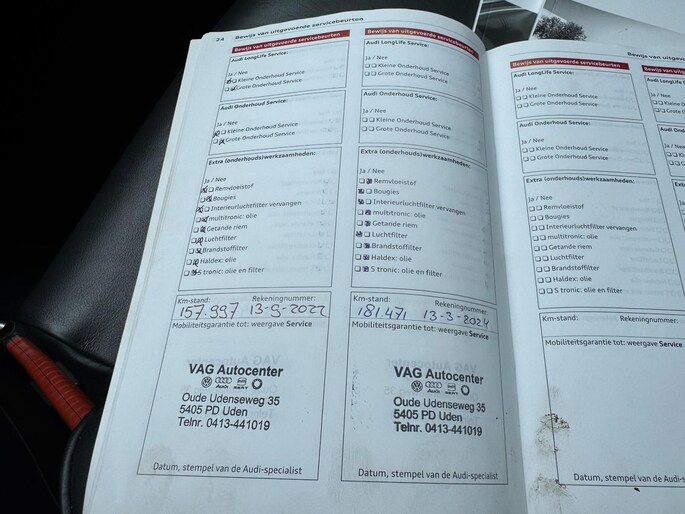 24 Bewijs van uitgevoerde servicebeurten
Bewijs van uitgevoerde servicebeurten
Audi LongLife Service:
Ja / Nee
Kleine Onderhoud Service
Grote Onderhoud Service
Audi Onderhoud Service:
Ja / Nee
Kleine Onderhoud Service
Grote Onderhoud Service
Extra (onderhouds)werkzaamheden:
Ja / Nee
Remvloeistof
Bougies
Interieurluchtfilter vervangen
multitronic: olie
Getande riem
Luchtfilter
Brandstoffilter
Haldex: olie
S tronic: olie en filter
Km-stand: Rekeningnummer:
157.997 13-9-2022
Mobiliteitsgarantie tot: weergave Service
VAG Autocenter
Audi SEAT
Oude Udenseweg 35
5405 PD Uden
Telnr. 0413-441019
Datum, stempel van de Audi-specialist
Bewijs van uitgevoerde servicebeurten
Audi LongLife Service:
Ja / Nee
Kleine Onderhoud Service
Grote Onderhoud Service
Audi Onderhoud Service:
Ja / Nee
Kleine Onderhoud Service
Grote Onderhoud Service
Extra (onderhouds)werkzaamheden:
Ja / Nee
Remvloeistof
Bougies
Interieurluchtfilter vervangen
multitronic: olie
Getande riem
Luchtfilter
Brandstoffilter
Haldex: olie
S tronic: olie en filter
Km-stand: Rekeningnummer:
181.471 13-3-2024
Mobiliteitsgarantie tot: weergave Service
VAG Autocenter
Audi SEAT
Oude Udenseweg 35
5405 PD Uden
Telnr. 0413-441019
Datum, stempel van de Audi-specialist
Bewijs van
Bewijs van uitgevoerde servicebeurten
Audi LongLife Service:
Ja / Nee
Kleine Onderhoud Service
Grote Onderhoud Service
Audi Onderhoud Service:
Ja / Nee
Kleine Onderhoud Service
Grote Onderhoud Service
Extra (onderhouds)werkzaamheden:
Ja / Nee
Remvloeistof
Bougies
Interieurluchtfilter vervangen
multitronic: olie
Getande riem
Luchtfilter
Brandstoffilter
Haldex: olie
S tronic: olie en filter
Km-stand: Rekeningnummer:
Mobiliteitsgarantie tot: weergave Service
Datum, stempel van de Audi-specialist
Bewijs van
Audi
Ja / Nee
Audi
Ja / Nee
Extra
Ja / Nee